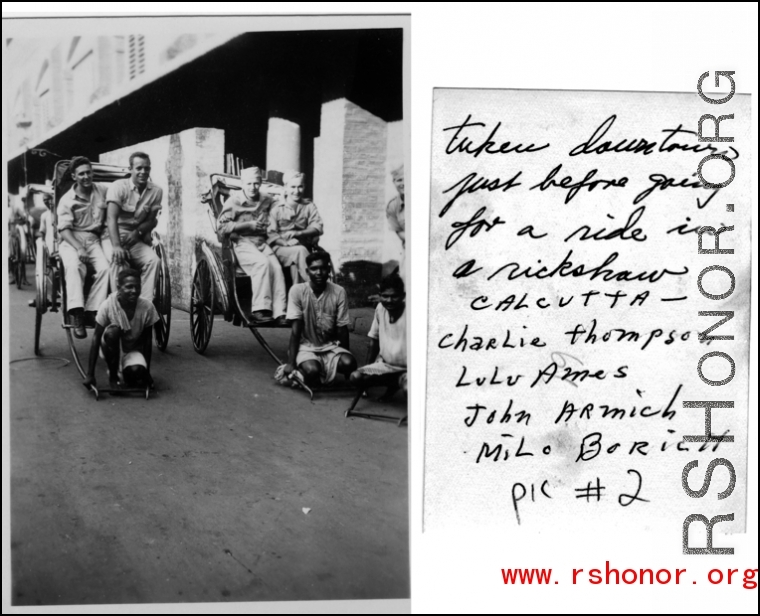 taken downtown
just before going
for a ride in
a rickshaw
CALCUTTA —
Charlie Thompson
LuLu Ames
John ARmich
MiLo BoRich
pic # 2
RSHONOR.ORG
www.rshonor.org